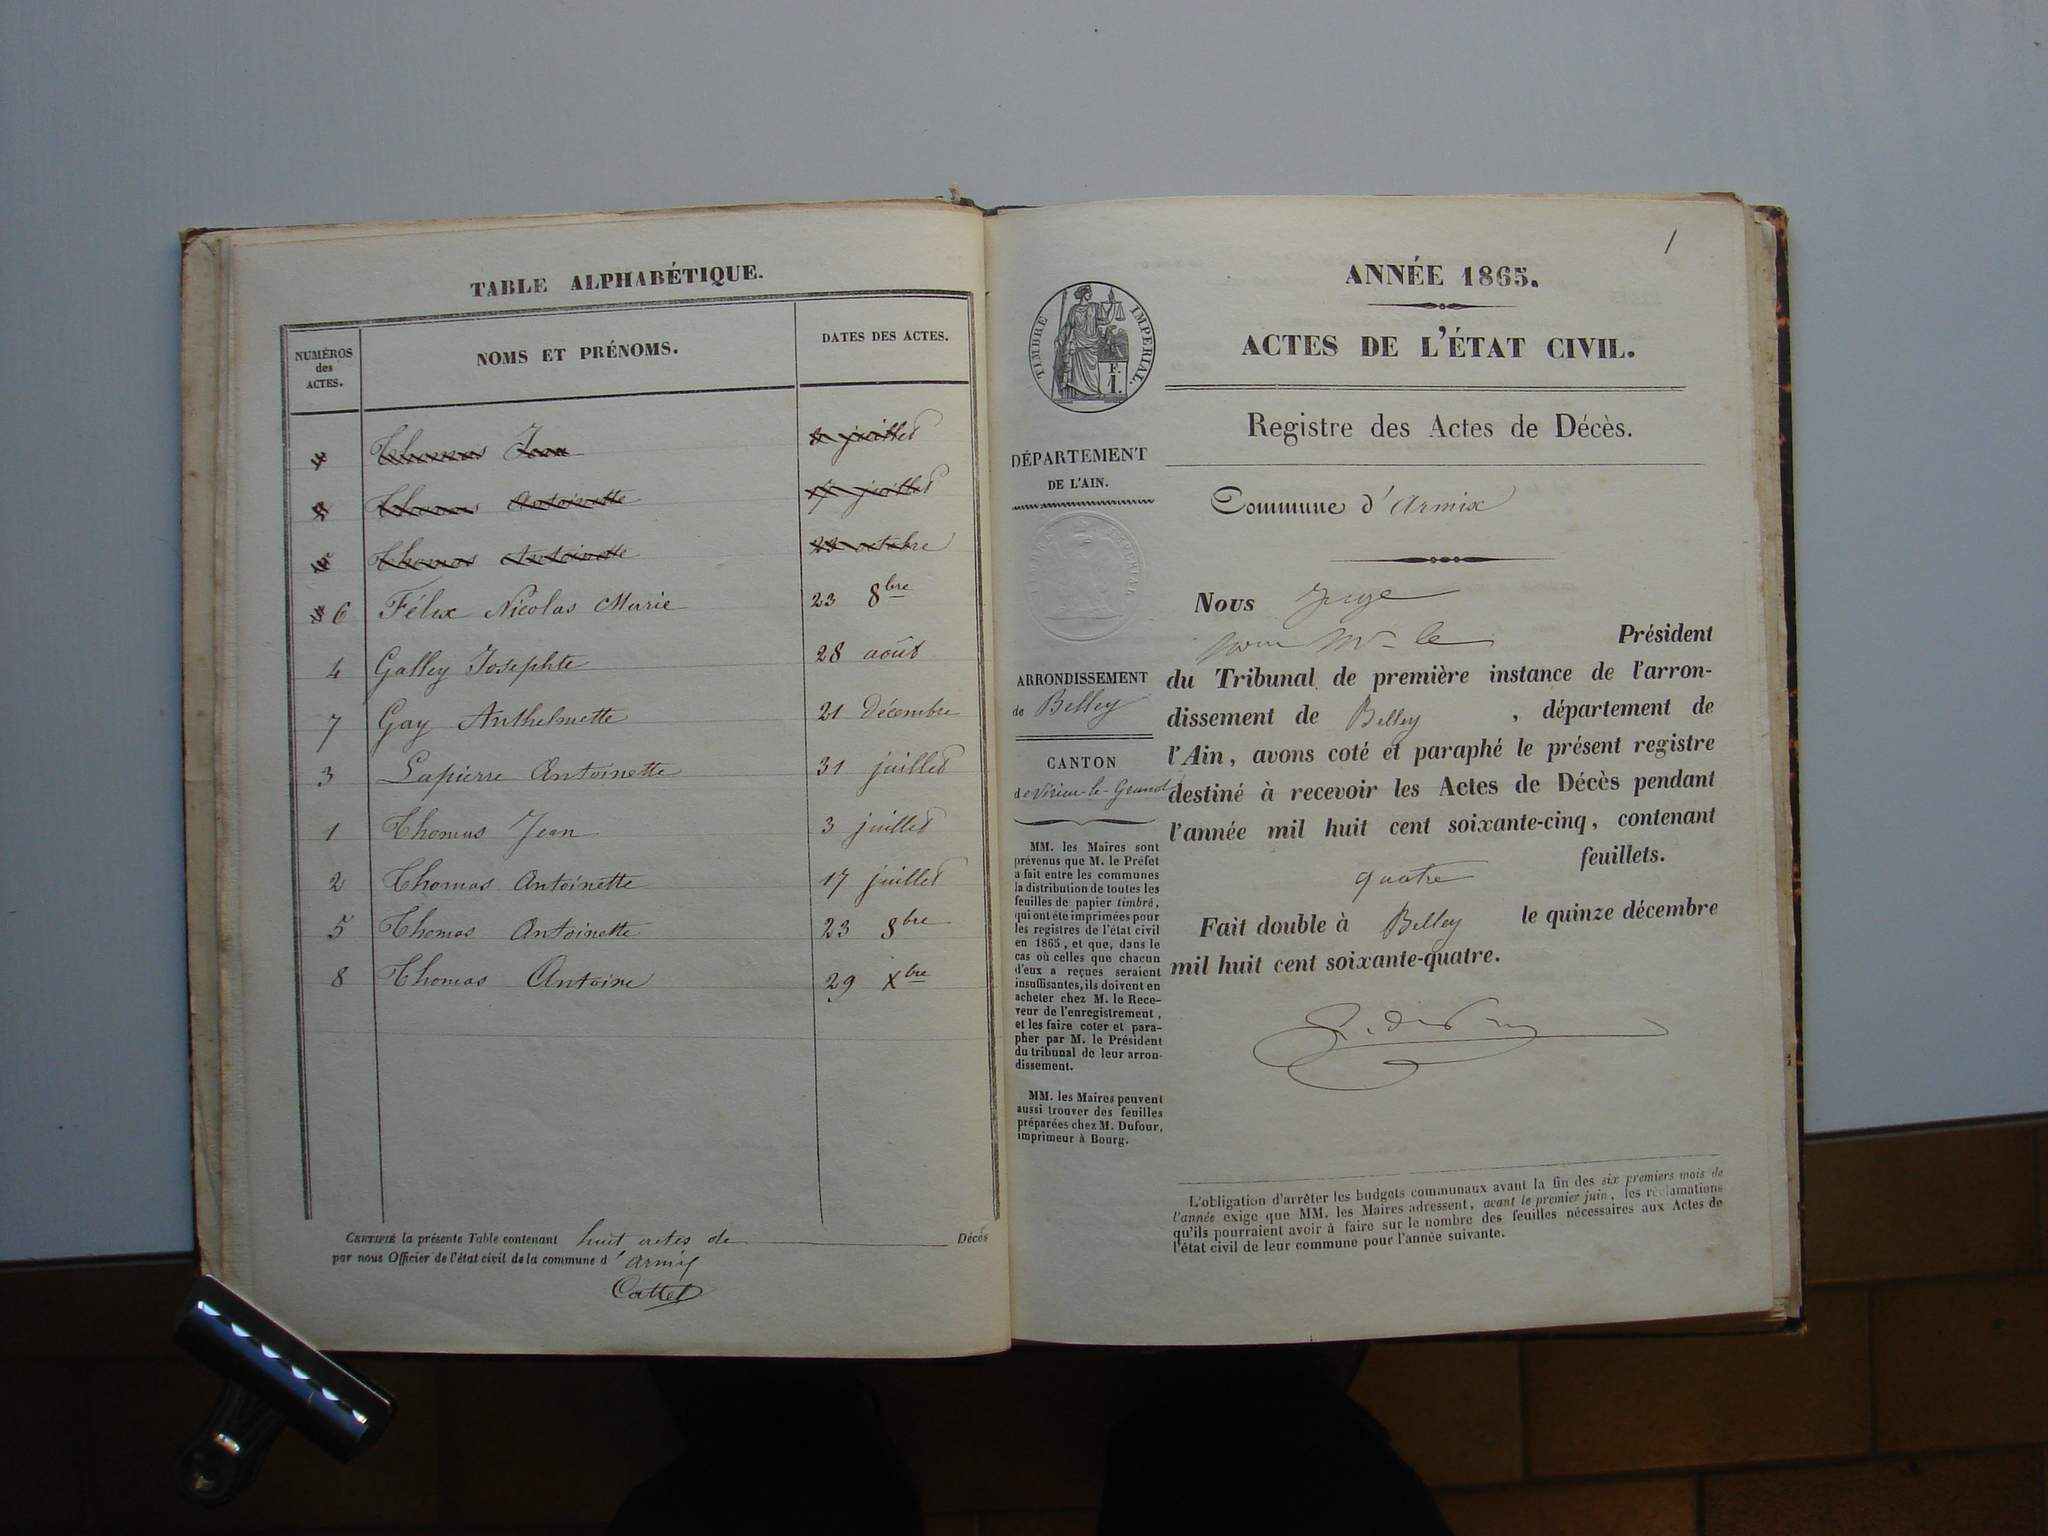 TABLE ALPHABÉTIQUE.
NUMÉROS des ACTES. NOMS ET PRÉNOMS. DATES DES ACTES.
Thomas Jean juillet
Thomas Antoinette 17 juillet
5 Thomas Antoinette 23 octobre
6 Félix Nicolas Marie 23 8bre
4 Galley Josephte 28 août
7 Gay Anthelmette 21 décembre
3 Lapierre Antoinette 31 juillet
1 Thomas Jean 3 juillet
2 Thomas Antoinette 17 juillet
5 Thomas Antoinette 23 8bre
8 Thomas Antoine 29 Xbre
CERTIFIÉ la présente Table contenant huit actes de Décès
par nous Officier de l'état civil de la commune d'Armix
Cattet
1
TIMBRE IMPERIAL.
F.
1.
DÉPARTEMENT
DE L'AIN.
ARRONDISSEMENT
de Belley
CANTON
de Virieu-le-Grand
MM. les Maires sont
prévenus que M. le Préfet
a fait entre les communes
la distribution de toutes les
feuilles de papier timbré,
qui ont été imprimées pour
les registres de l'état civil
en 1865, et que, dans le
cas où celles que chacun
d'eux a reçues seraient
insuffisantes, ils doivent en
acheter chez M. le Rece-
veur de l'enregistrement,
et les faire coter et para-
pher par M. le Président
du tribunal de leur arron-
dissement.
MM. les Maires peuvent
aussi trouver des feuilles
préparées chez M. Dufour,
imprimeur à Bourg.
ANNÉE 1865.
ACTES DE L'ÉTAT CIVIL.
Registre des Actes de Décès.
Commune d'Armix
Nous Juge
pour Mr le Président
du Tribunal de première instance de l'arron-
dissement de Belley, département de
l'Ain, avons coté et paraphé le présent registre
destiné à recevoir les Actes de Décès pendant
l'année mil huit cent soixante-cinq, contenant
quatre feuillets.
Fait double à Belley le quinze décembre
mil huit cent soixante-quatre.
L'obligation d'arrêter les budgets communaux avant la fin des six premiers mois de
l'année exige que MM. les Maires adressent, avant le premier juin, les réclamations
qu'ils pourraient avoir à faire sur le nombre des feuilles nécessaires aux Actes de
l'état civil de leur commune pour l'année suivante.